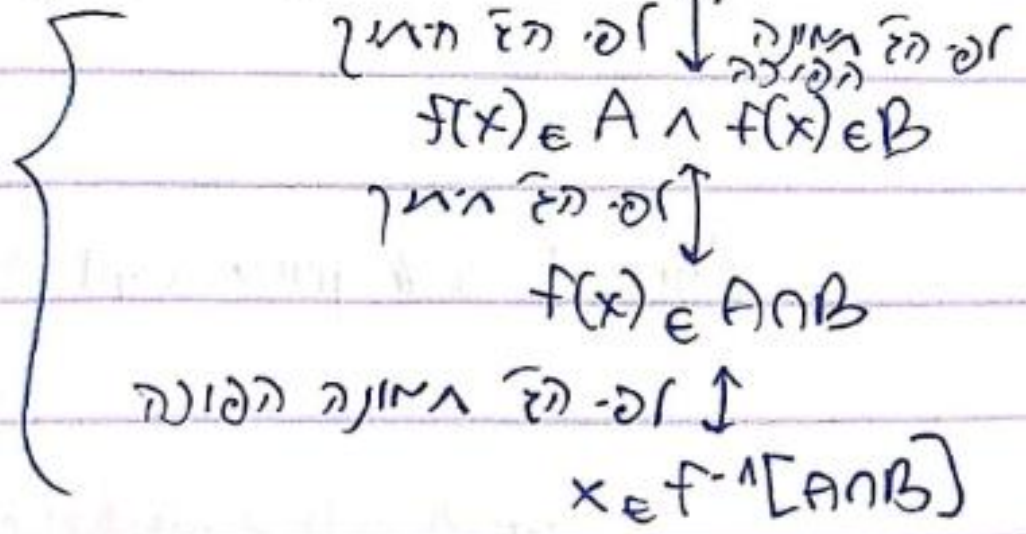 לפי הג' חיתוך ↓ לפי הג' תמונה
הפוכה
f(x) ∈ A ∧ f(x) ∈ B
↕ לפי הג' חיתוך
f(x) ∈ A∩B
↕ לפי הג' תמונה הפוכה
x ∈ f⁻¹[A∩B]